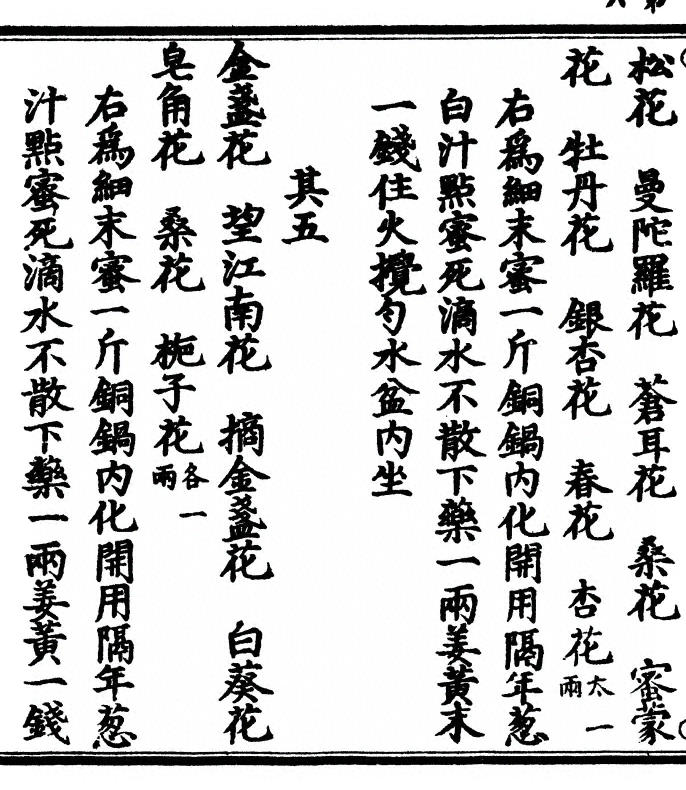 松花　曼陀羅花　蒼耳花　桑花　蜜蒙
花　牡丹花　銀杏花　春花　杏花太一兩
右爲細末蜜一斤銅鍋内化開用隔年葱
白汁點蜜死滴水不散下藥一兩姜黃末
一錢住火攪勻水盆内坐
其五
金盞花　望江南花　摘金盞花　白葵花
皂角花　桑花　梔子花各一兩
右爲細末蜜一斤銅鍋内化開用隔年葱
汁點蜜死滴水不散下藥一兩姜黃一錢